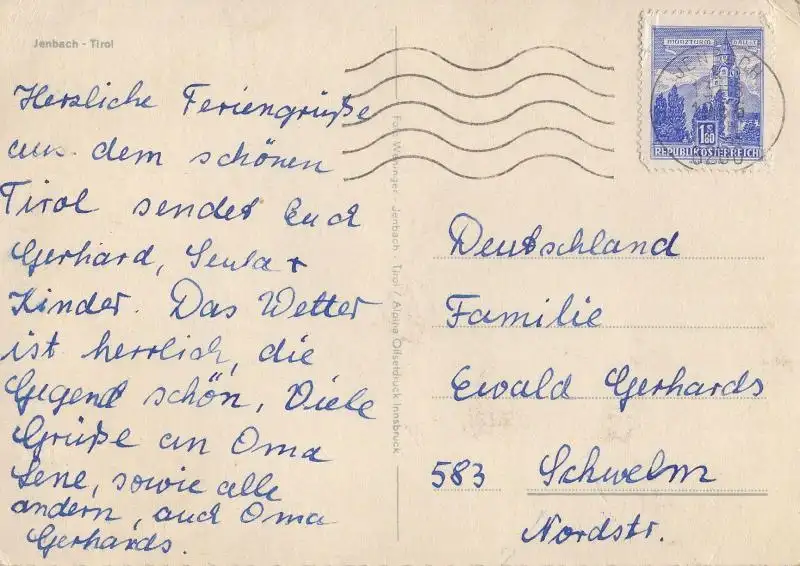 Jenbach - Tirol
Herzliche Feriengrüße
aus dem schönen
Tirol sendet Euch
Gerhard, +
Kinder. Das Wetter
ist herrlich, die
Gegend schön, Viele
Grüße an Oma
Lene, sowie alle
andern, auch Oma
Gerhards.
Jenbach - Tirol / Alpina Offsetdruck Innsbruck
MÜNZTURM HALL
1.80
REPUBLIK ÖSTERREICH
JENBACH
Deutschland
Familie
Ewald Gerhards
583 Schwelm
Nordstr.